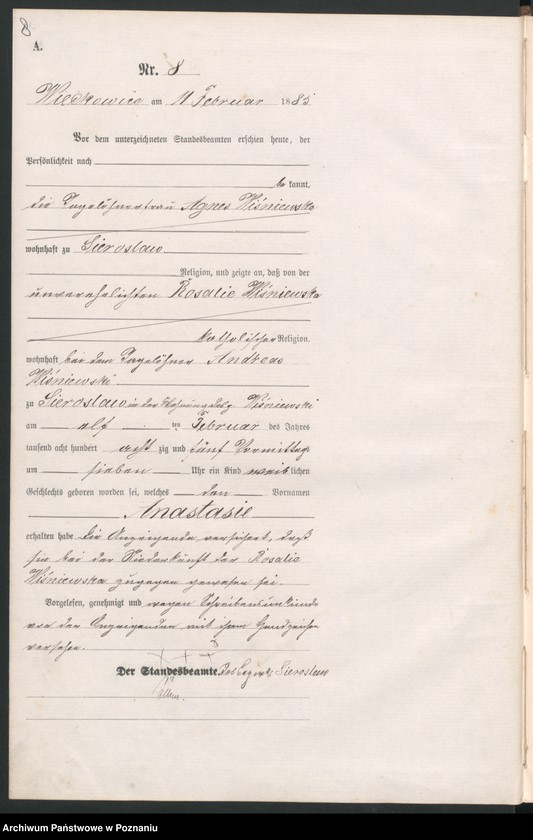 8
A.
Nr. 8
Wieckowice am 11 Februar 1885
Vor dem unterzeichneten Standesbeamten erschien heute, der
Persönlichkeit nach
be kannt,
die Tagelöhnerfrau Agnes Wiśniewska
wohnhaft zu Sieroslaw
Religion, und zeigte an, daß von der
unverehelichten Rosalie Wiśniewska
katholischer Religion,
wohnhaft bei dem Tagelöhner Andreas
Wiśniewski
zu Sieroslaw in der Wohnung des Wiśniewski
am elf ten Februar des Jahres
tausend acht hundert acht zig und fünf Vormittags
um sieben Uhr ein Kind weib lichen
Geschlechts geboren worden sei, welches den Vornamen
Anastasie
erhalten habe. Die Anzeigende versichert, daß
sie bei der Niederkunft der Rosalie
Wiśniewska zugegen gewesen sei.
Vorgelesen, genehmigt und wegen Schreibensunkunde
von der Anzeigenden mit ihrem Handzeichen
versehen.
+ + +
Der Standesbeamte. Sieroslaw
Archiwum Państwowe w Poznaniu